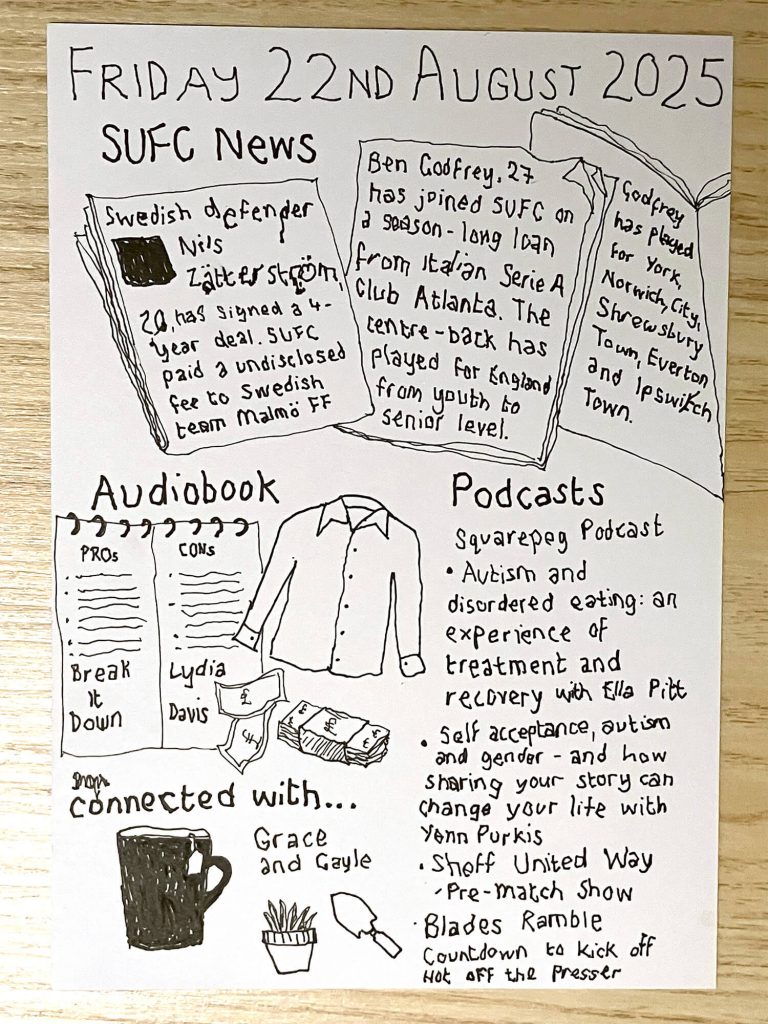 FRIDAY 22ND AUGUST 2025
SUFC NEWS
Swedish defender
Nils
Zätterström,
20, has signed a 4-
year deal. SUFC
paid a undisclosed
fee to Swedish
team Malmö FF
Ben Godfrey, 27
has joined SUFC on
a season-long loan
from Italian Serie A
Club Atlanta. The
centre-back has
played for England
from youth to
senior level.
Godfrey
has played
for York,
Norwich, City,
Shrewsbury
Town, Everton
and Ipswich
Town.
Audiobook
PROs
CONs
Break
It
Down
Lydia
Davis
£
£
£
£
Connected with...
Grace
and Gayle
Podcasts
Squarepeg Podcast
• Autism and
disordered eating: an
experience of
treatment and
recovery with Ella Pitt
• Self acceptance, autism
and gender - and how
sharing your story can
change your life with
Yenn Purkis
• Sheff United Way
- Pre-Match Show
• Blades Ramble
Countdown to kick off
Hot off the Presser